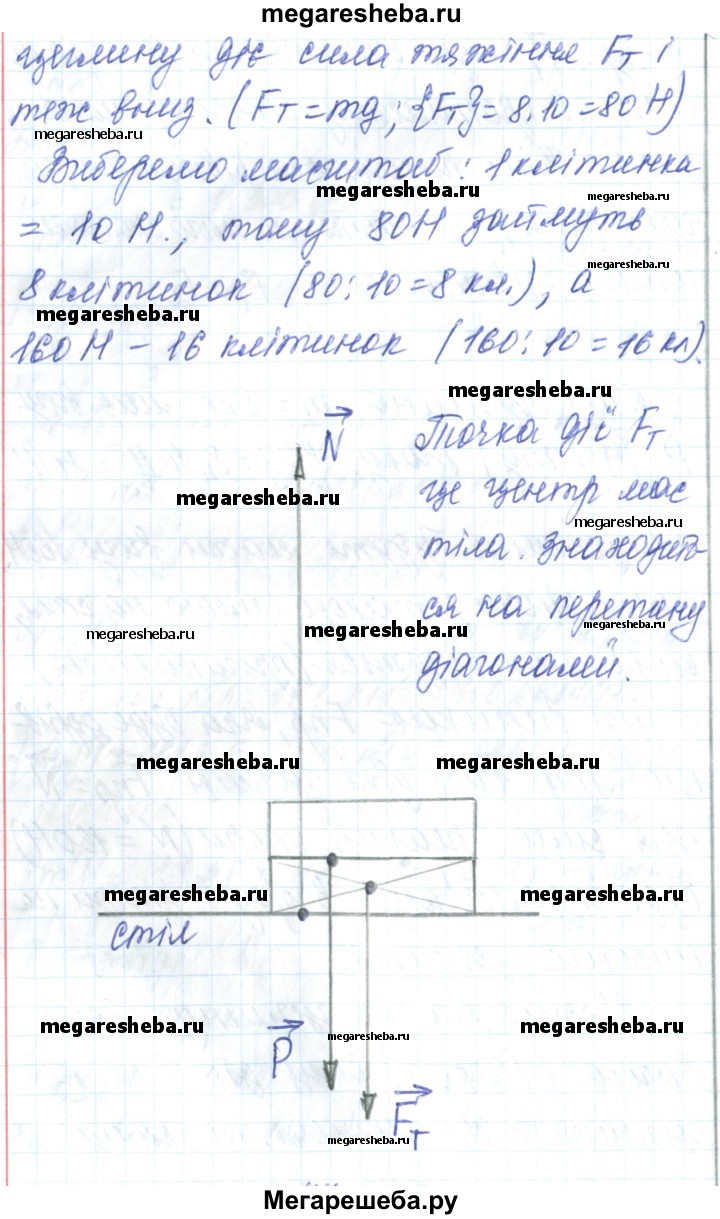 megaresheba.ru
цеглину діє сила тяжіння Fт і
теж вниз. (Fт = mg; {Fт} = 8·10 = 80 Н)
megaresheba.ru megaresheba.ru
Виберемо масштаб: 1 клітинка
megaresheba.ru megaresheba.ru
= 10 Н., тому 80Н займуть
megaresheba.ru
8 клітинок (80:10=8 кл.), а
megaresheba.ru megaresheba.ru
160 Н – 16 клітинок (160:10=16 кл).
megaresheba.ru
N
Точка дії Fт
megaresheba.ru
це центр мас
megaresheba.ru
тіла. Знаходить-
ся на перетину
megaresheba.ru megaresheba.ru
діагоналей.
megaresheba.ru megaresheba.ru
megaresheba.ru megaresheba.ru
стіл
megaresheba.ru megaresheba.ru megaresheba.ru
P
Fт
megaresheba.ru
Мегарешеба.ру